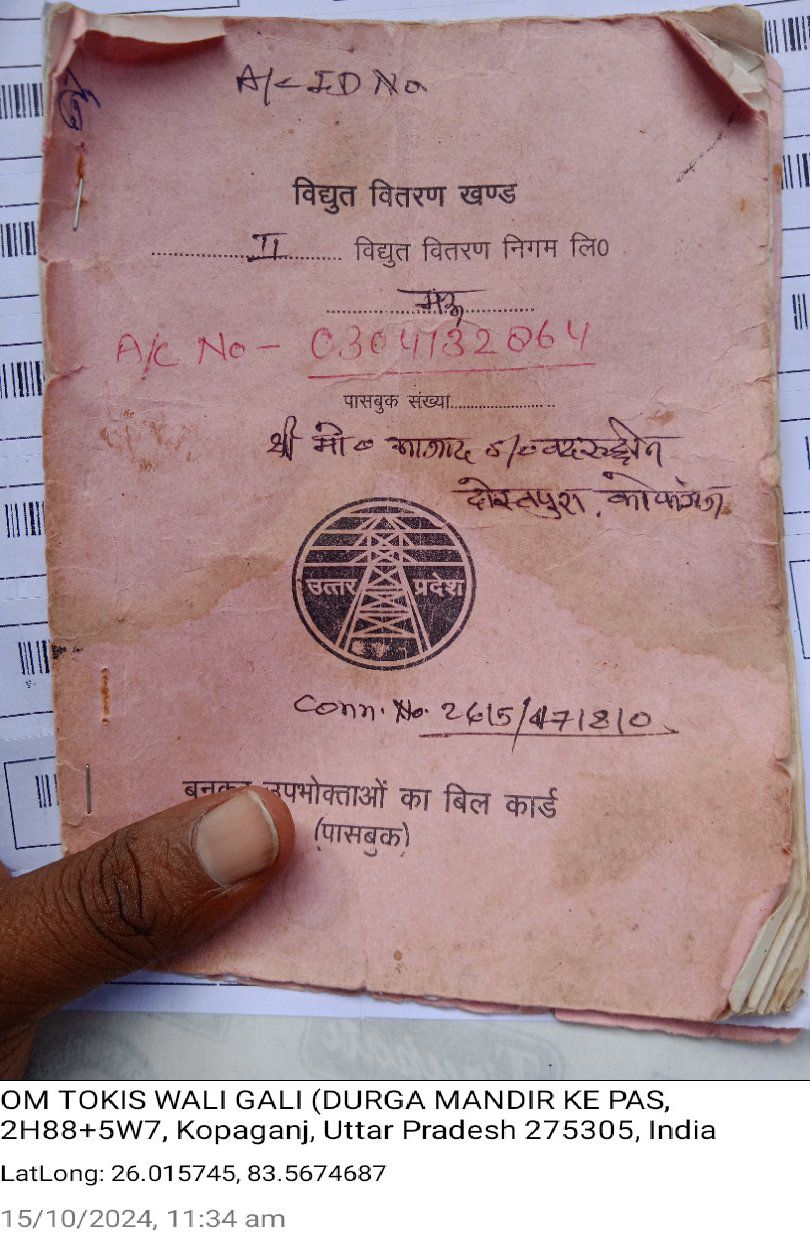 A/C ID No
विद्युत वितरण खण्ड
II विद्युत वितरण निगम लि0
मऊ
A/C No - 0304132064
पासबुक संख्या
श्री मो० आजाद S/० बदरुद्दीन
दोस्तपुरा, कोपागंज
उत्तर प्रदेश
Conn. No. 2615/471810
बुनकर उपभोक्ताओं का बिल कार्ड
(पासबुक)
OM TOKIS WALI GALI (DURGA MANDIR KE PAS,
2H88+5W7, Kopaganj, Uttar Pradesh 275305, India
LatLong: 26.015745, 83.5674687
15/10/2024, 11:34 am